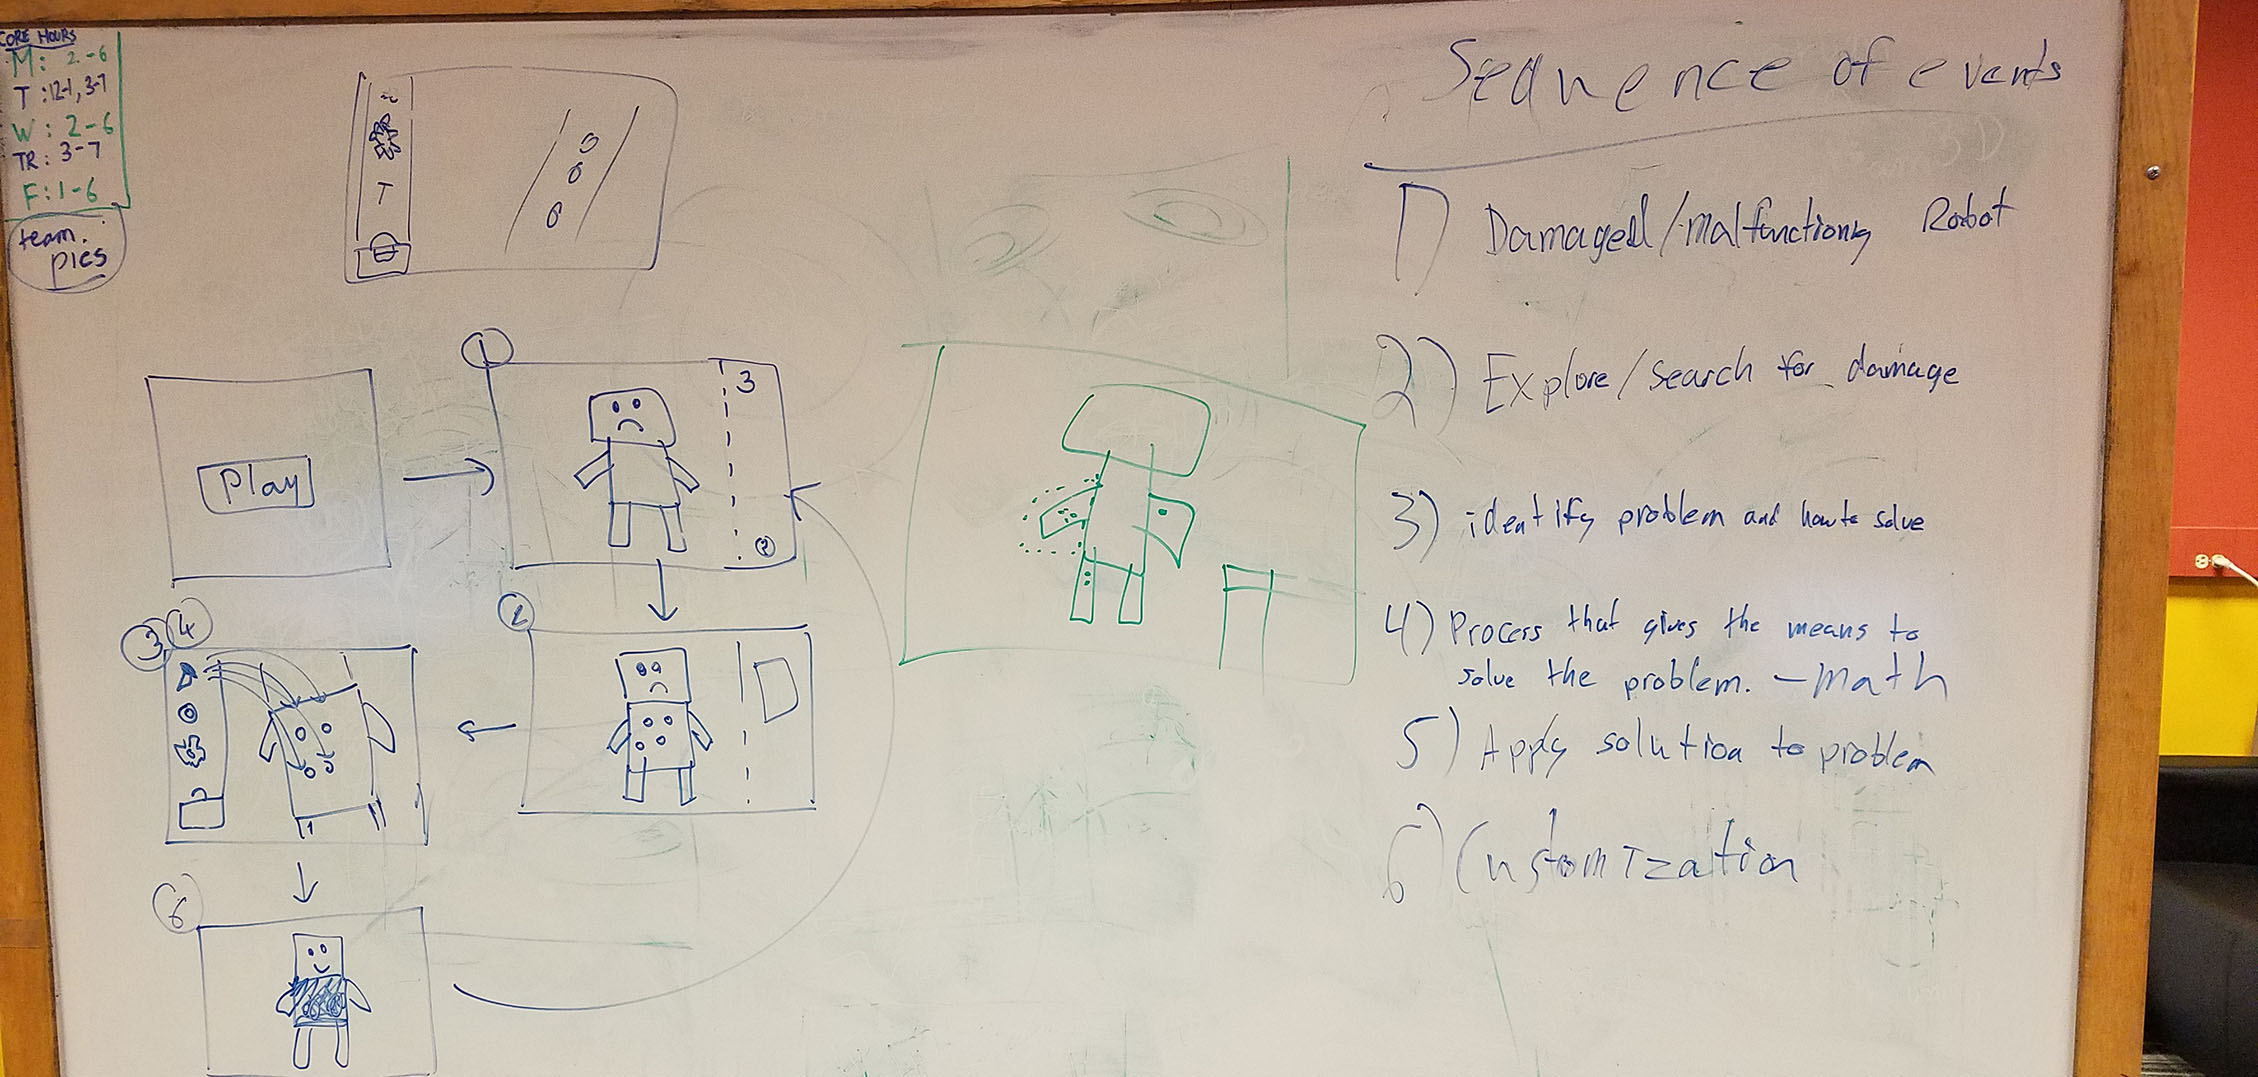 CORE HOURS
M: 2-6
T: 12-1, 3-7
W: 2-6
TR: 3-7
F: 1-6
team.
pics
T
Play
1
3
2
3 4
6
Sequence of events
1) Damaged/malfunctiong Robot
2) Explore/search for damage
3) identify problem and how to solve
4) Process that gives the means to
solve the problem. - math
5) Apply solution to problem
6) Customization